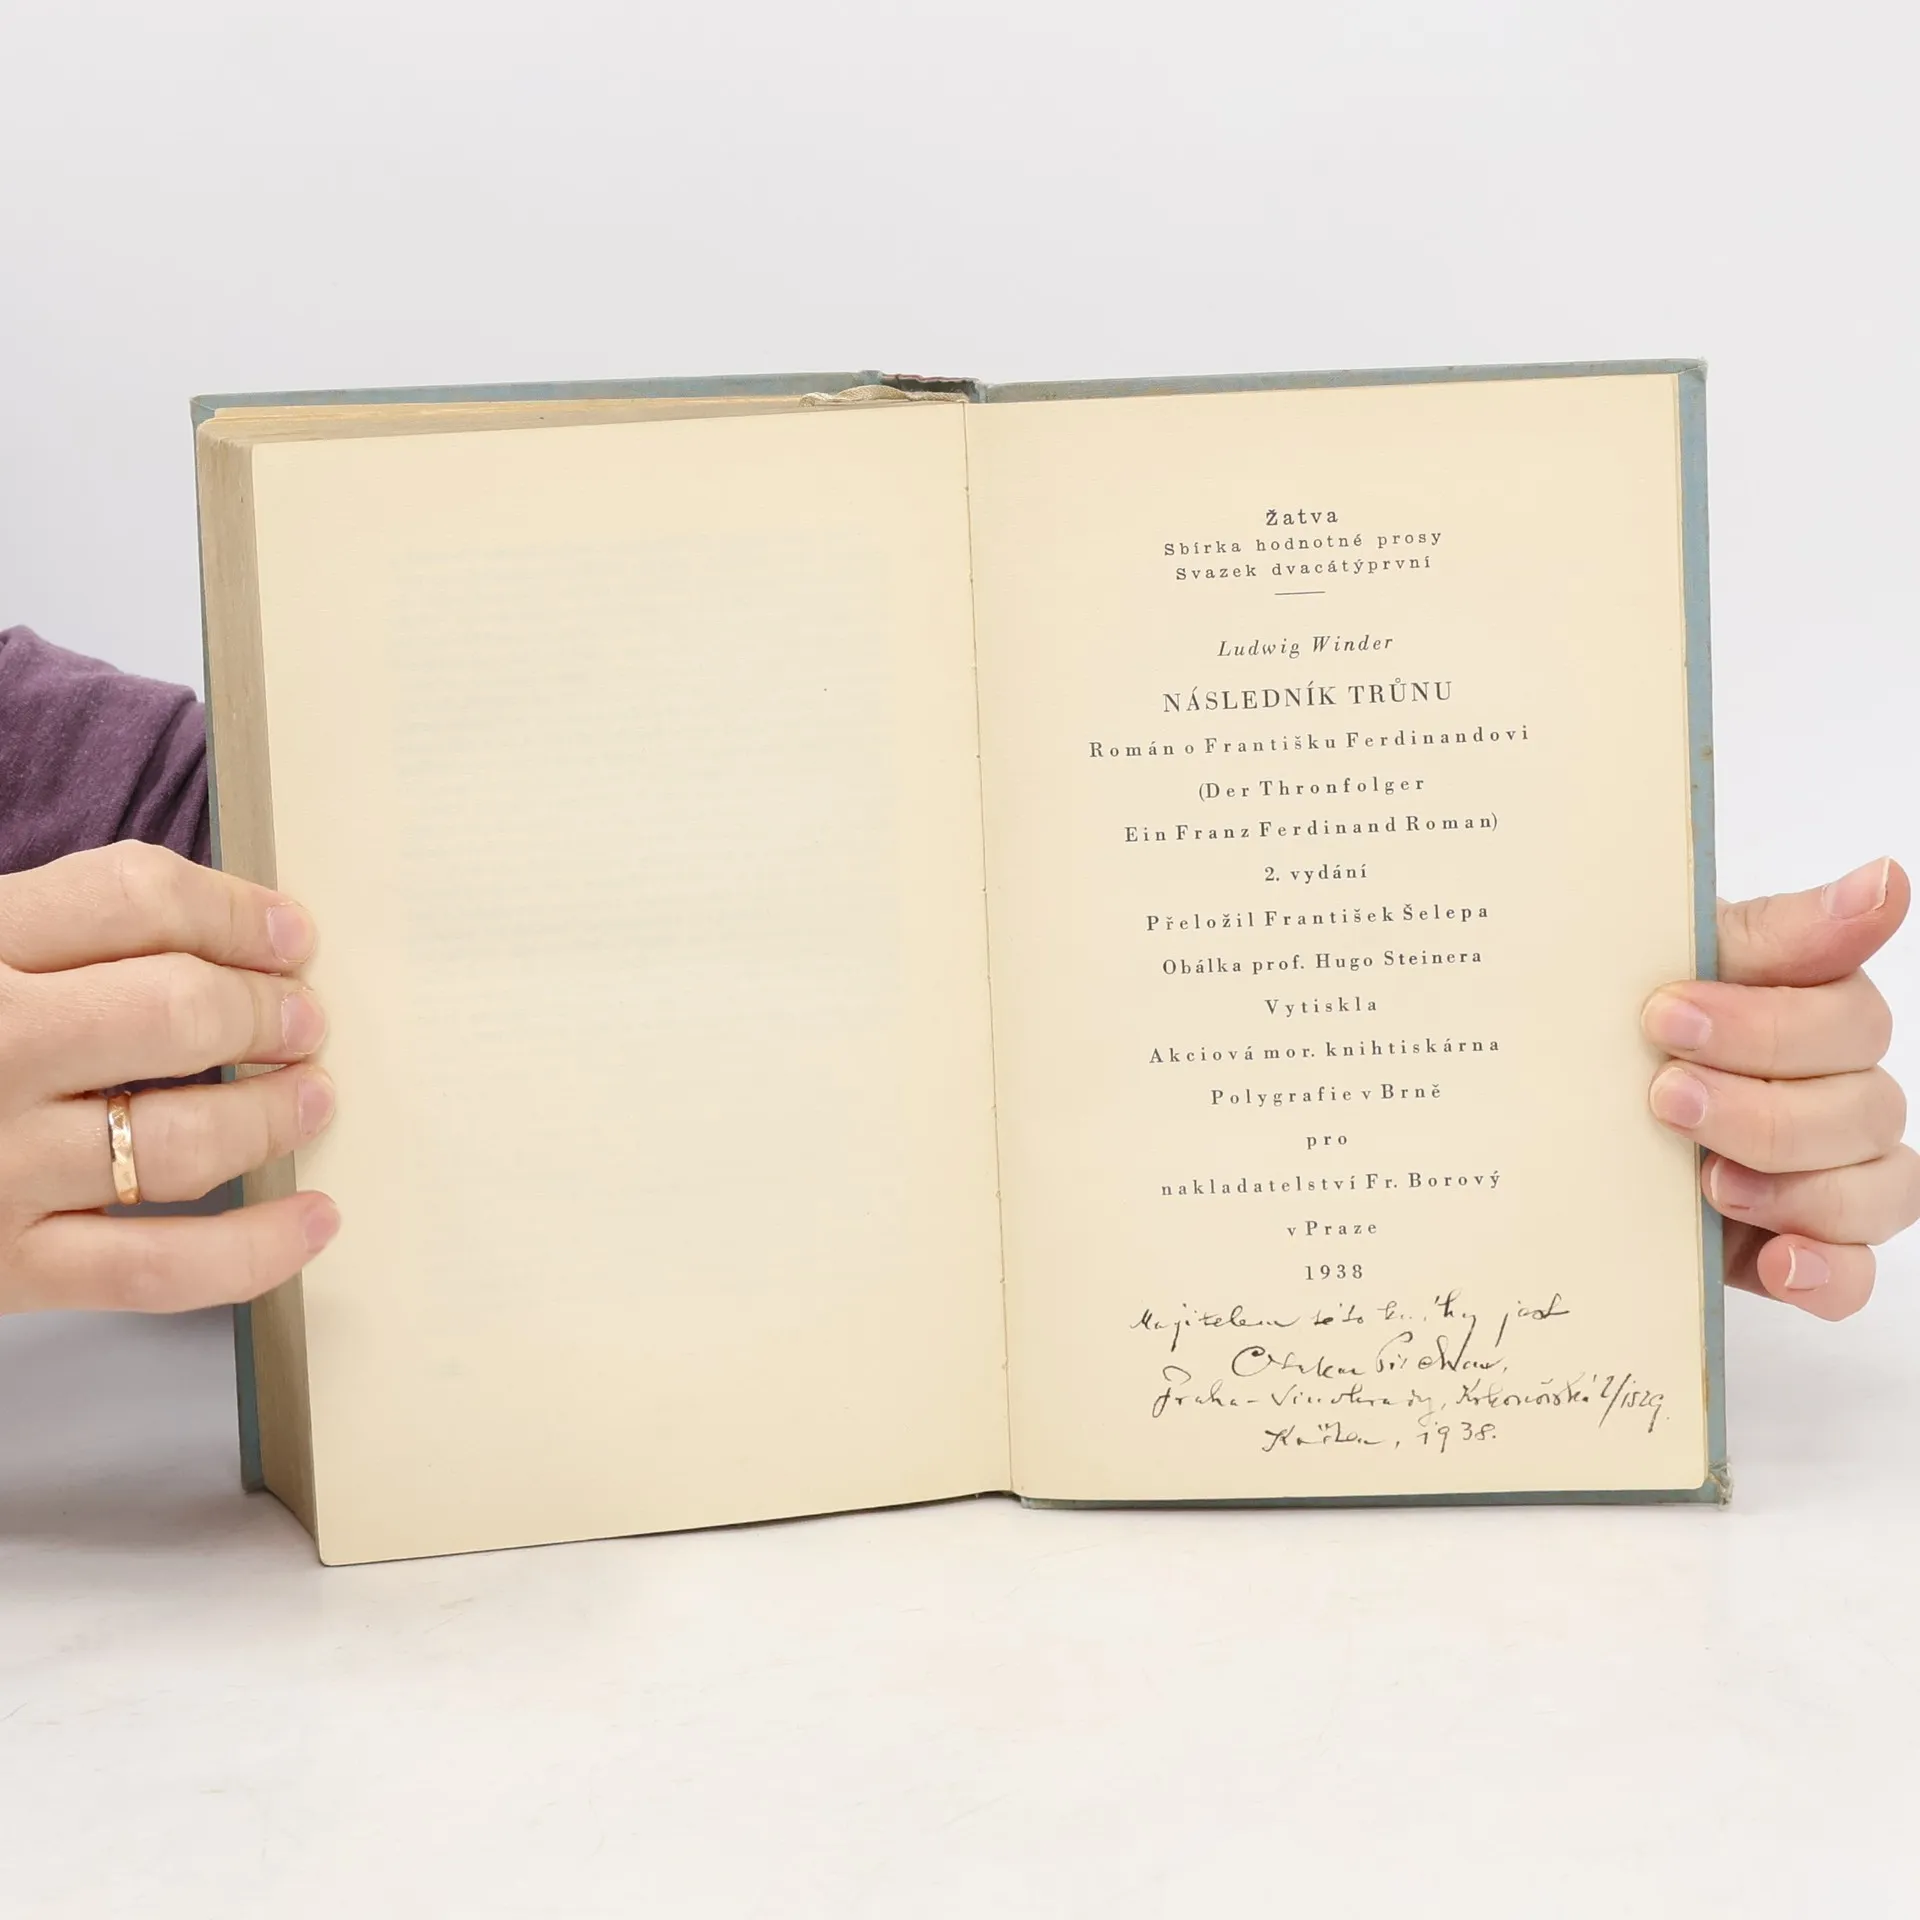 Žatva
Sbírka hodnotné prosy
Svazek dvacátýprvní
Ludwig Winder
NÁSLEDNÍK TRŮNU
Román o Františku Ferdinandovi
(Der Thronfolger
Ein Franz Ferdinand Roman)
2. vydání
Přeložil František Šelepa
Obálka prof. Hugo Steinera
Vytiskla
Akciová mor. knihtiskárna
Polygrafie v Brně
pro
nakladatelství Fr. Borový
v Praze
1938
Majitelem této knihy jest
Praha - Vinohrady, Krkonošská
1938.